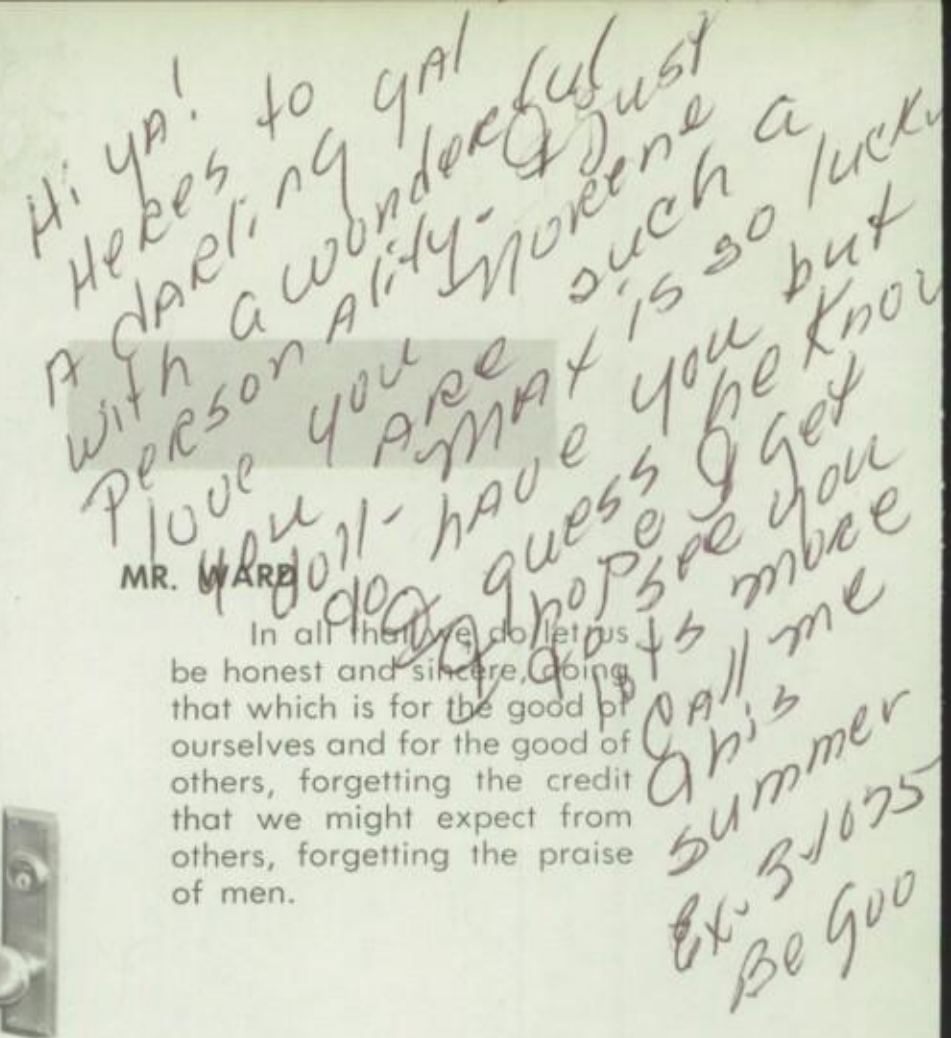 Hi yA!
Heres to yA!
A dARling
with a wonderful
PersonAlity- I Just
love you Morene
you ARe such a
doll- MAt is so lucky
to have you but
I guess he know
I hope I get
to see you
lots more
CAll me
this
summer
Ex.
Be Goo
MR. WARD
In all that we do let us
be honest and sincere, doing
that which is for the good of
ourselves and for the good of
others, forgetting the credit
that we might expect from
others, forgetting the praise
of men.